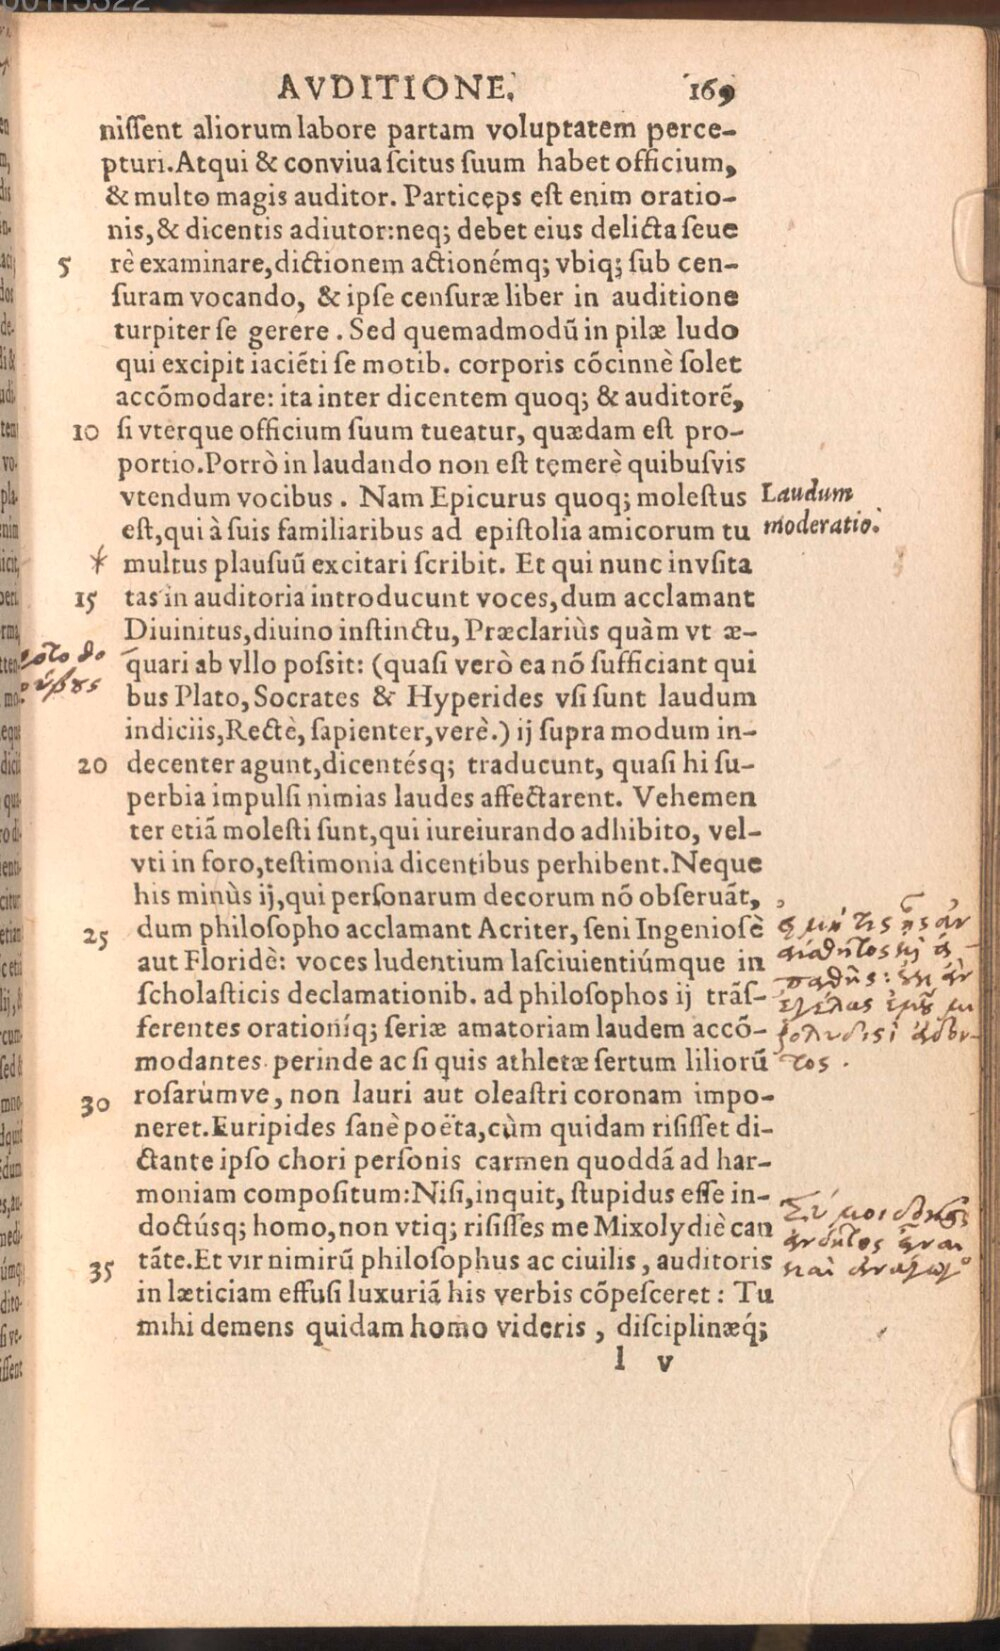 AVDITIONE. 169
niſſent aliorum labore partam voluptatem perce-
pturi. Atqui & conviua ſcitus ſuum habet officium,
& multo magis auditor. Particeps eſt enim oratio-
nis, & dicentis adiutor: neq; debet eius delicta ſeue
5 rè examinare, dictionem actionémq; vbiq; ſub cen-
ſuram vocando, & ipſe cenſuræ liber in auditione
turpiter ſe gerere. Sed quemadmodũ in pilæ ludo
qui excipit iaciẽti ſe motib. corporis cõcinnè ſolet
accõmodare: ita inter dicentem quoq; & auditorẽ,
10 ſi vterque officium ſuum tueatur, quædam eſt pro-
portio. Porrò in laudando non eſt temerè quibuſvis
vtendum vocibus. Nam Epicurus quoq; moleſtus
Laudum
eſt, qui à ſuis familiaribus ad epiſtolia amicorum tu
moderatio.
multus plauſuũ excitari ſcribit. Et qui nunc invſita
15 tas in auditoria introducunt voces, dum acclamant
Diuinitus, diuino inſtinctu, Præclariùs quàm vt æ-
quari ab vllo poſſit: (quaſi verò ea nõ ſufficiant qui
bus Plato, Socrates & Hyperides vſi ſunt laudum
indiciis, Rectè, ſapienter, verè.) ij ſupra modum in-
20 decenter agunt, dicentésq; traducunt, quaſi hi ſu-
perbia impulſi nimias laudes affectarent. Vehemen
ter etiã moleſti ſunt, qui iureiurando adhibito, vel-
vti in foro, teſtimonia dicentibus perhibent. Neque
his minùs ij, qui perſonarum decorum nõ obſeruãt,
25 dum philoſopho acclamant Acriter, ſeni Ingenioſè
aut Floridè: voces ludentium laſciuientiúmque in
ſcholaſticis declamationib. ad philoſophos ij trãſ-
ferentes orationíq; ſeriæ amatoriam laudem accõ-
modantes perinde ac ſi quis athletæ ſertum liliorũ
30 roſarúmve, non lauri aut oleaſtri coronam impo-
neret. Euripides ſanè poëta, cùm quidam riſiſſet di-
ctante ipſo chori perſonis carmen quoddã ad har-
moniam compoſitum: Niſi, inquit, ſtupidus eſſe in-
doctúsq; homo, non vtiq; riſiſſes me Mixolydiè can
35 tãte. Et vir nimirũ philoſophus ac ciuilis, auditoris
in læticiam effuſi luxuriã his verbis cõpeſceret: Tu
mihi demens quidam homo videris, diſciplinæq́;
l v